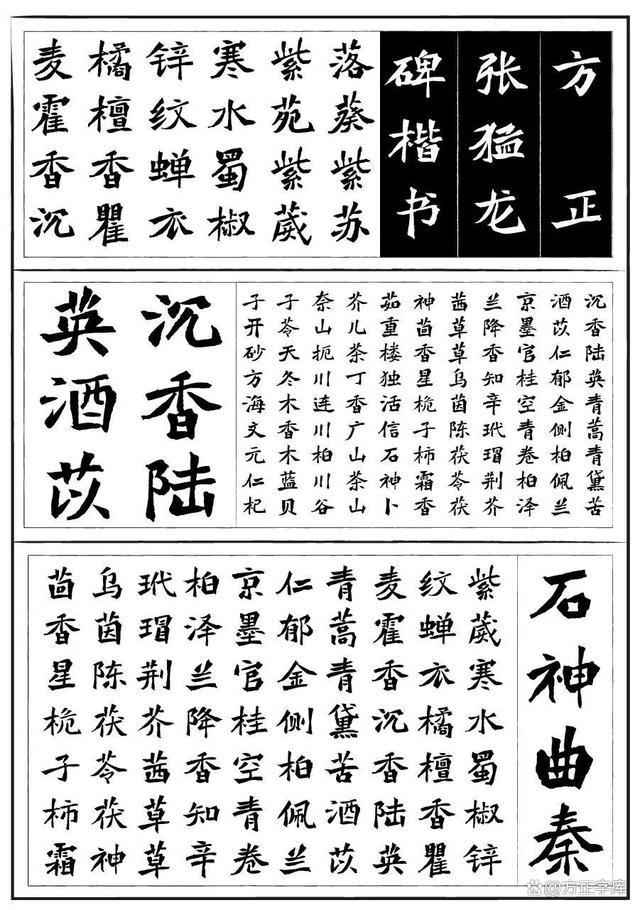 方正
张猛龙
碑楷书
落葵紫苏
紫苑紫葳
寒水蜀椒
锌纹蝉衣
橘檀香瞿
麦霍香沉
沉香陆英青蒿青黛苦
酒苡仁郁金侧柏佩兰
京墨官桂空青卷柏泽
兰降香知辛玳瑁荆芥
茜草草乌茵陈茯苓茯
神茴香星桅子柿霜香
茹重楼独活信石神卜
芥儿茶丁香广山茶山
奈山扼川连川柏川谷
子苓天冬木香木蓝贝
子开砂方海文元仁杞
沉香陆
英酒苡
石神曲秦
紫葳寒水蜀椒锌
纹蝉衣橘檀香瞿
麦霍香沉香陆英
青蒿青黛苦酒苡
仁郁金侧柏佩兰
京墨官桂空青卷
柏泽兰降香知辛
玳瑁荆芥茜草草
乌茵陈茯苓茯神
茴香星桅子柿霜
@方正字库